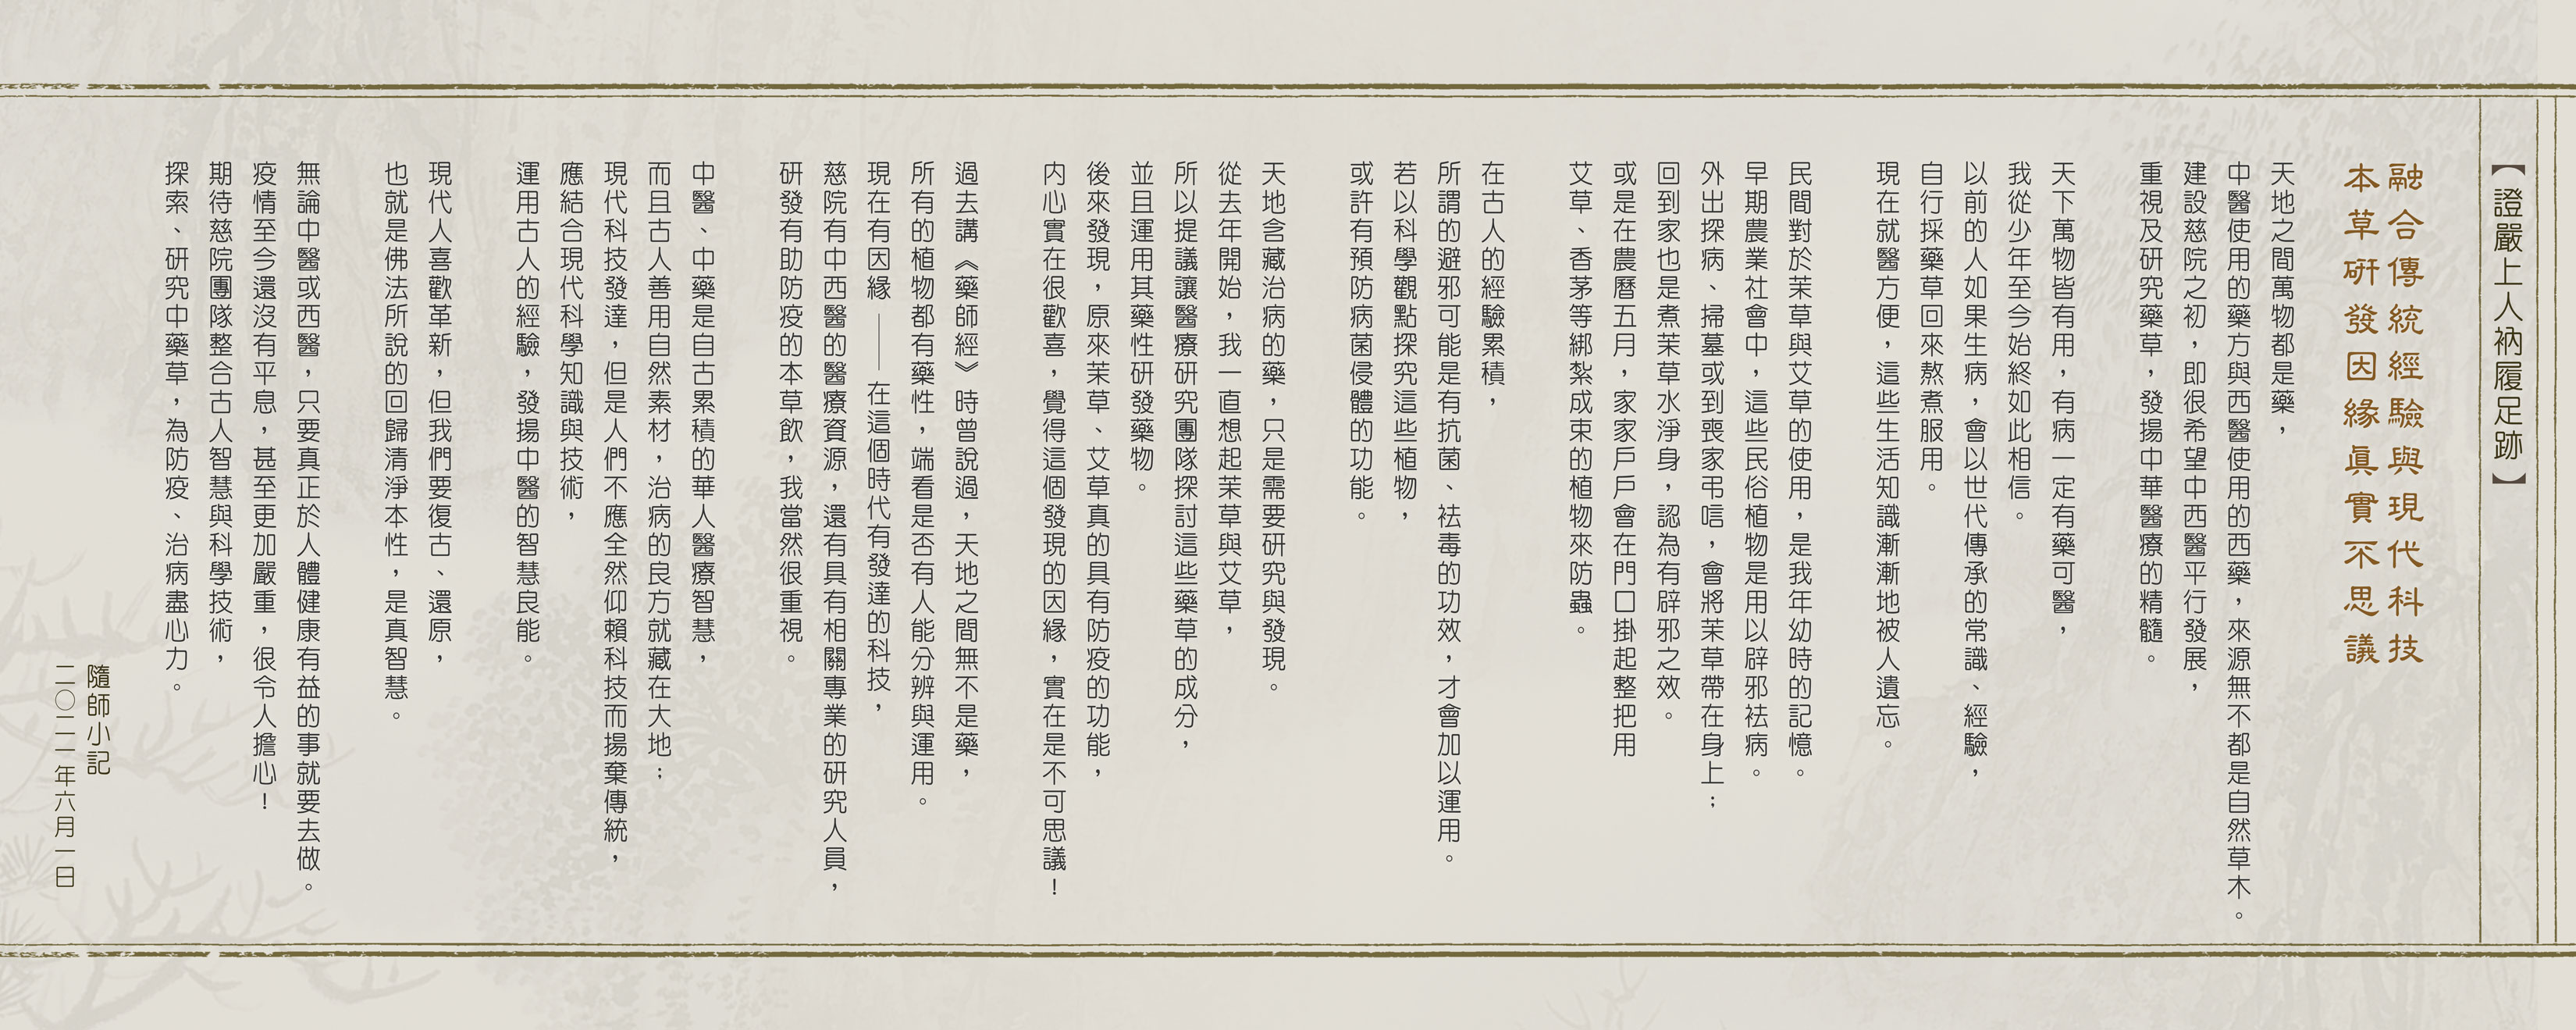 【證嚴上人衲履足跡】
融合傳統經驗與現代科技
本草研發因緣真實不思議
天地之間萬物都是藥，
中醫使用的藥方與西醫使用的西藥，來源無不都是自然草木。
建設慈院之初，即很希望中西醫平行發展，
重視及研究藥草，發揚中華醫療的精髓。
天下萬物皆有用，有病一定有藥可醫，
我從少年至今始終如此相信。
以前的人如果生病，會以世代傳承的常識、經驗，
自行採藥草回來熬煮服用。
現在就醫方便，這些生活知識漸漸地被人遺忘。
民間對於茉草與艾草的使用，是我年幼時的記憶。
早期農業社會中，這些民俗植物是用以辟邪袪病。
外出探病、掃墓或到喪家弔唁，會將茉草帶在身上；
回到家也是煮茉草水淨身，認為有辟邪之效。
或是在農曆五月，家家戶戶會在門口掛起整把用
艾草、香茅等綁紮成束的植物來防蟲。
在古人的經驗累積，
所謂的避邪可能是有抗菌、袪毒的功效，才會加以運用。
若以科學觀點探究這些植物，
或許有預防病菌侵體的功能。
天地含藏治病的藥，只是需要研究與發現。
從去年開始，我一直想起茉草與艾草，
所以提議讓醫療研究團隊探討這些藥草的成分，
並且運用其藥性研發藥物。
後來發現，原來茉草、艾草真的具有防疫的功能，
內心實在很歡喜，覺得這個發現的因緣，實在是不可思議！
過去講《藥師經》時曾說過，天地之間無不是藥，
所有的植物都有藥性，端看是否有人能分辨與運用。
現在有因緣——在這個時代有發達的科技，
慈院有中西醫的醫療資源，還有具有相關專業的研究人員，
研發有助防疫的本草飲，我當然很重視。
中醫、中藥是自古累積的華人醫療智慧，
而且古人善用自然素材，治病的良方就藏在大地；
現代科技發達，但是人們不應全然仰賴科技而揚棄傳統，
應結合現代科學知識與技術，
運用古人的經驗，發揚中醫的智慧良能。
現代人喜歡革新，但我們要復古、還原，
也就是佛法所說的回歸清淨本性，是真智慧。
無論中醫或西醫，只要真正於人體健康有益的事就要去做。
疫情至今還沒有平息，甚至更加嚴重，很令人擔心！
期待慈院團隊整合古人智慧與科學技術，
探索、研究中藥草，為防疫、治病盡心力。
隨師小記
二〇二一年六月一日